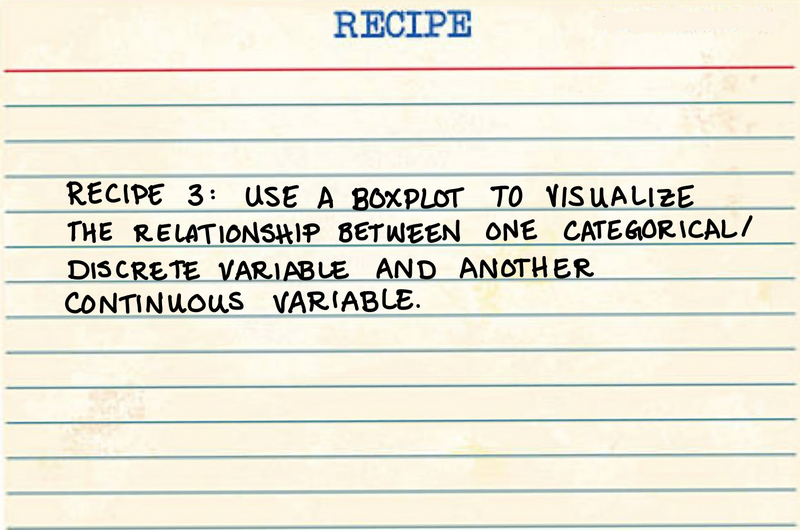 RECIPE
RECIPE 3: USE A BOXPLOT TO VISUALIZE
THE RELATIONSHIP BETWEEN ONE CATEGORICAL/
DISCRETE VARIABLE AND ANOTHER
CONTINUOUS VARIABLE.